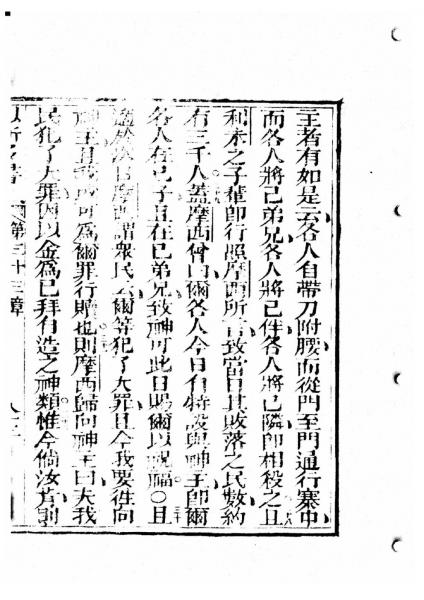 王者有如是云各人自帶刀附腰而從門至門通行寨中
而各人將己弟兄各人將己伴各人將己隣卽相殺之且
利未之子輩卽行照摩西所言致當日其敗落之民數約
有三千人蓋摩西曾曰爾各人今日自特設與神王卽爾
各人在己子且在己弟兄致神可此日賜爾以祝福○且
次日摩西謂眾民云爾等犯了大罪且今我要往向
神王且我或可為爾罪行贖也則摩西歸向神王曰夫我
民犯了大罪因以金為己拜有造之神類惟今倘汝肯則
第三十三章